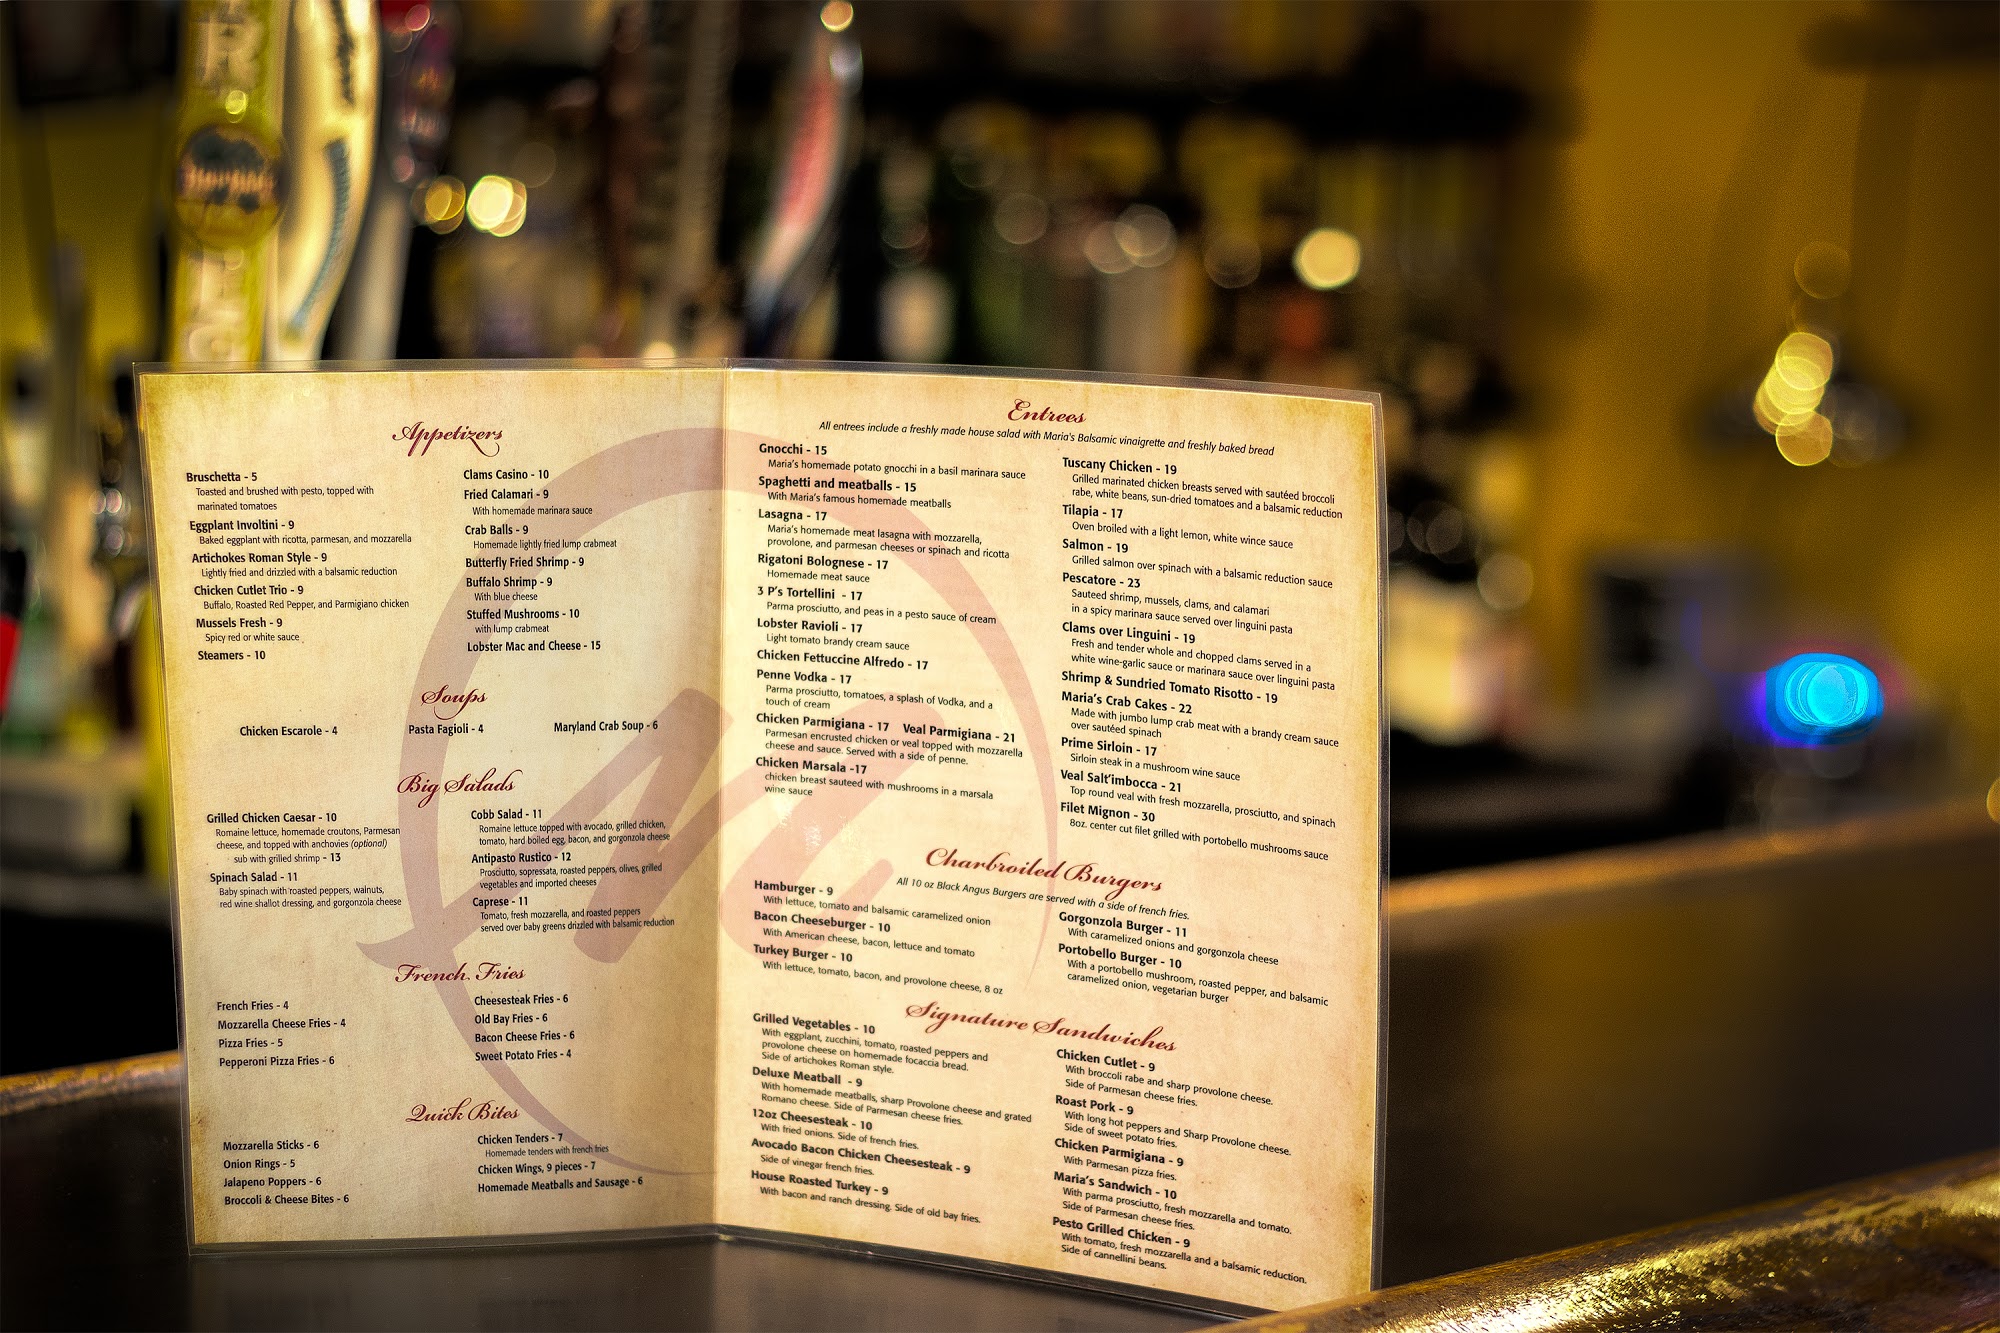 Appetizers
Bruschetta - 5
Toasted and brushed with pesto, topped with
marinated tomatoes
Eggplant Involtini - 9
Baked eggplant with ricotta, parmesan, and mozzarella
Artichokes Roman Style - 9
Lightly fried and drizzled with a balsamic reduction
Chicken Cutlet Trio - 9
Buffalo, Roasted Red Pepper, and Parmigiano chicken
Mussels Fresh - 9
Spicy red or white sauce
Steamers - 10
Clams Casino - 10
Fried Calamari - 9
With homemade marinara sauce
Crab Balls - 9
Homemade lightly fried lump crabmeat
Butterfly Fried Shrimp - 9
Buffalo Shrimp - 9
With blue cheese
Stuffed Mushrooms - 10
with lump crabmeat
Lobster Mac and Cheese - 15
Soups
Chicken Escarole - 4
Pasta Fagioli - 4
Maryland Crab Soup - 6
Big Salads
Grilled Chicken Caesar - 10
Romaine lettuce, homemade croutons, Parmesan
cheese, and topped with anchovies (optional)
sub with grilled shrimp - 13
Spinach Salad - 11
Baby spinach with roasted peppers, walnuts,
red wine shallot dressing, and gorgonzola cheese
Cobb Salad - 11
Romaine lettuce topped with avocado, grilled chicken,
tomato, hard boiled egg, bacon, and gorgonzola cheese
Antipasto Rustico - 12
Prosciutto, sopressata, roasted peppers, olives, grilled
vegetables and imported cheeses
Caprese - 11
Tomato, fresh mozzarella, and roasted peppers
served over baby greens drizzled with balsamic reduction
French Fries
French Fries - 4
Mozzarella Cheese Fries - 4
Pizza Fries - 5
Pepperoni Pizza Fries - 6
Cheesesteak Fries - 6
Old Bay Fries - 6
Bacon Cheese Fries - 6
Sweet Potato Fries - 4
Quick Bites
Mozzarella Sticks - 6
Onion Rings - 5
Jalapeno Poppers - 6
Broccoli & Cheese Bites - 6
Chicken Tenders - 7
Homemade tenders with french fries
Chicken Wings, 9 pieces - 7
Homemade Meatballs and Sausage - 6
Entrees
All entrees include a freshly made house salad with Maria's Balsamic vinaigrette and freshly baked bread
Gnocchi - 15
Maria's homemade potato gnocchi in a basil marinara sauce
Spaghetti and meatballs - 15
With Maria's famous homemade meatballs
Lasagna - 17
Maria's homemade meat lasagna with mozzarella,
provolone, and parmesan cheeses or spinach and ricotta
Rigatoni Bolognese - 17
Homemade meat sauce
3 P's Tortellini - 17
Parma prosciutto, and peas in a pesto sauce of cream
Lobster Ravioli - 17
Light tomato brandy cream sauce
Chicken Fettuccine Alfredo - 17
Penne Vodka - 17
Parma prosciutto, tomatoes, a splash of Vodka, and a
touch of cream
Chicken Parmigiana - 17 Veal Parmigiana - 21
Parmesan encrusted chicken or veal topped with mozzarella
cheese and sauce. Served with a side of penne.
Chicken Marsala -17
chicken breast sauteed with mushrooms in a marsala
wine sauce
Tuscany Chicken - 19
Grilled marinated chicken breasts served with sautéed broccoli
rabe, white beans, sun-dried tomatoes and a balsamic reduction
Tilapia - 17
Oven broiled with a light lemon, white wince sauce
Salmon - 19
Grilled salmon over spinach with a balsamic reduction sauce
Pescatore - 23
Sauteed shrimp, mussels, clams, and calamari
in a spicy marinara sauce served over linguini pasta
Clams over Linguini - 19
Fresh and tender whole and chopped clams served in a
white wine-garlic sauce or marinara sauce over linguini pasta
Shrimp & Sundried Tomato Risotto - 19
Maria's Crab Cakes - 22
Made with jumbo lump crab meat with a brandy cream sauce
over sautéed spinach
Prime Sirloin - 17
Sirloin steak in a mushroom wine sauce
Veal Salt'imbocca - 21
Top round veal with fresh mozzarella, prosciutto, and spinch
Filet Mignon - 30
8oz. center cut filet grilled with portobello mushrooms sauce
Charbroiled Burgers
All 10 oz Black Angus Burgers are served with a side of french fries.
Hamburger - 9
With lettuce, tomato and balsamic caramelized onion
Bacon Cheeseburger - 10
With American cheese, bacon, lettuce and tomato
Turkey Burger - 10
With lettuce, tomato, bacon, and provolone cheese, 8 oz
Gorgonzola Burger - 11
With caramelized onions and gorgonzola cheese
Portobello Burger - 10
With a portobello mushroom, roasted pepper, and balsamic
caramelized onion, vegetarian burger
Signature Sandwiches
Grilled Vegetables - 10
With eggplant, zucchini, tomato, roasted peppers and
provolone cheese on homemade focaccia bread.
Side of artichokes Roman style.
Deluxe Meatball - 9
With homemade meatballs, sharp Provolone cheese and grated
Romano cheese. Side of Parmesan cheese fries.
12oz Cheesesteak - 10
With fried onions. Side of french fries.
Avocado Bacon Chicken Cheesesteak - 9
Side of vinegar french fries.
House Roasted Turkey - 9
With bacon and ranch dressing. Side of old bay fries.
Chicken Cutlet - 9
With broccoli rabe and sharp provolone cheese.
Side of Parmesan cheese fries.
Roast Pork - 9
With long hot peppers and Sharp Provolone cheese.
Side of sweet potato fries.
Chicken Parmigiana - 9
With Parmesan pizza fries.
Maria's Sandwich - 10
With parma prosciutto, fresh mozzarella and tomato.
Side of Parmesan cheese fries.
Pesto Grilled Chicken - 9
With tomato, fresh mozzarella and a balsamic reduction.
Side of cannellini beans.